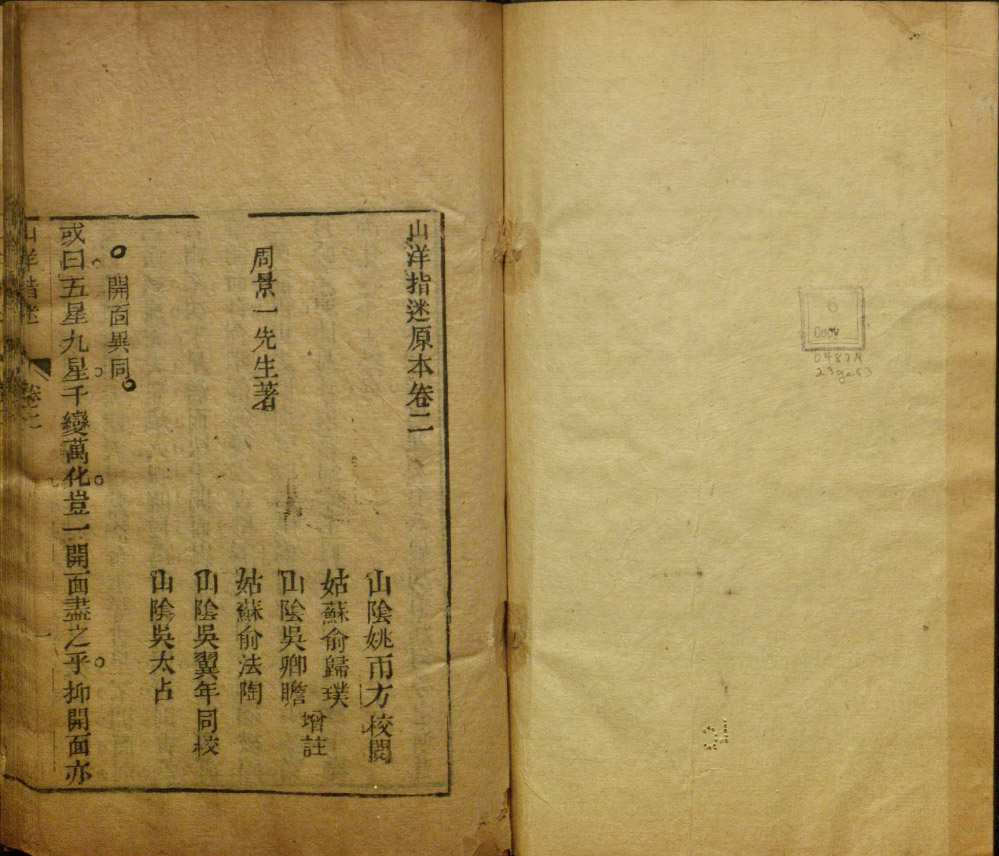 山洋指迷原本卷二
周景一先生著
山陰姚雨方校閱
姑蘇俞歸璞
山陰吳卿瞻
增註
姑蘇俞法陶
山陰吳翼年同校
山陰吳太占
開面異同
或曰五星九星千變萬化豈一開面盡之乎抑開面亦
山洋指迷
卷二
Copy